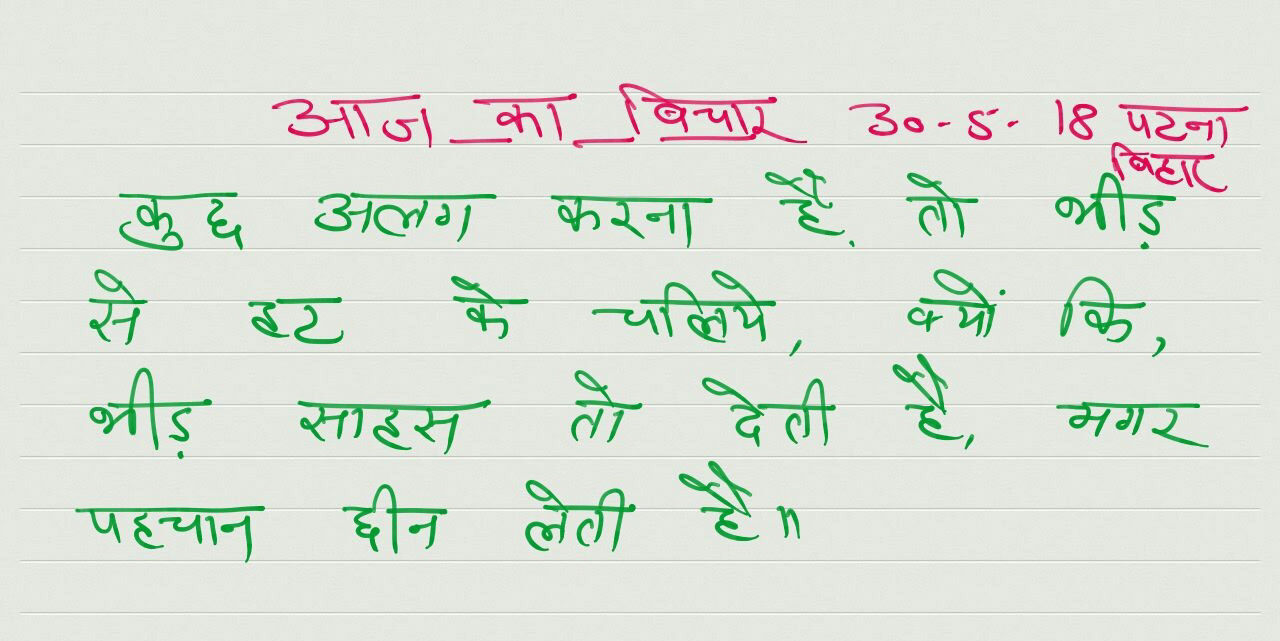 आज का बिचार 30-5-18 पटना
बिहार
कुछ अलग करना है, तो भीड़
से हट के चलिये, क्यों कि,
भीड़ साहस तो देती है, मगर
पहचान छीन लेती है॥